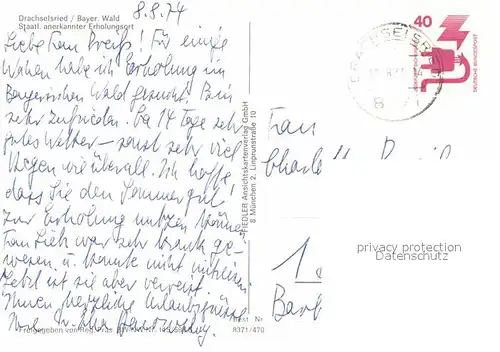 Drachselsried / Bayer. Wald
Staatl. anerkannter Erholungsort
8.8.74
Liebe Frau Preiß! Für einige
Wochen habe ich Erholung im
Bayerischen Wald gesucht. Bin
sehr zufrieden. Ca 14 Tage sehr
gutes Wetter – sonst sehr viel
Regen wie überall. Ich hoffe,
dass Sie den Sommer gut
zur Erholung nutzen können
Frau Lieb war sehr krank ge-
wesen u. konnte nicht mitreisen
Jetzt ist sie aber verreist.
Ihnen herzliche Urlaubsgrüsse
Ihre
Freigegeben von Reg. Präs.
Best Nr
8371/470
FIEDLER Ansichtskartenverlag GmbH
8 München 2, Linprunstraße 10
40
DEUTSCHE BUNDESPOST
DRACHSELSRIED
Frau
Charl
privacy protection
Datenschutz
1
Berl